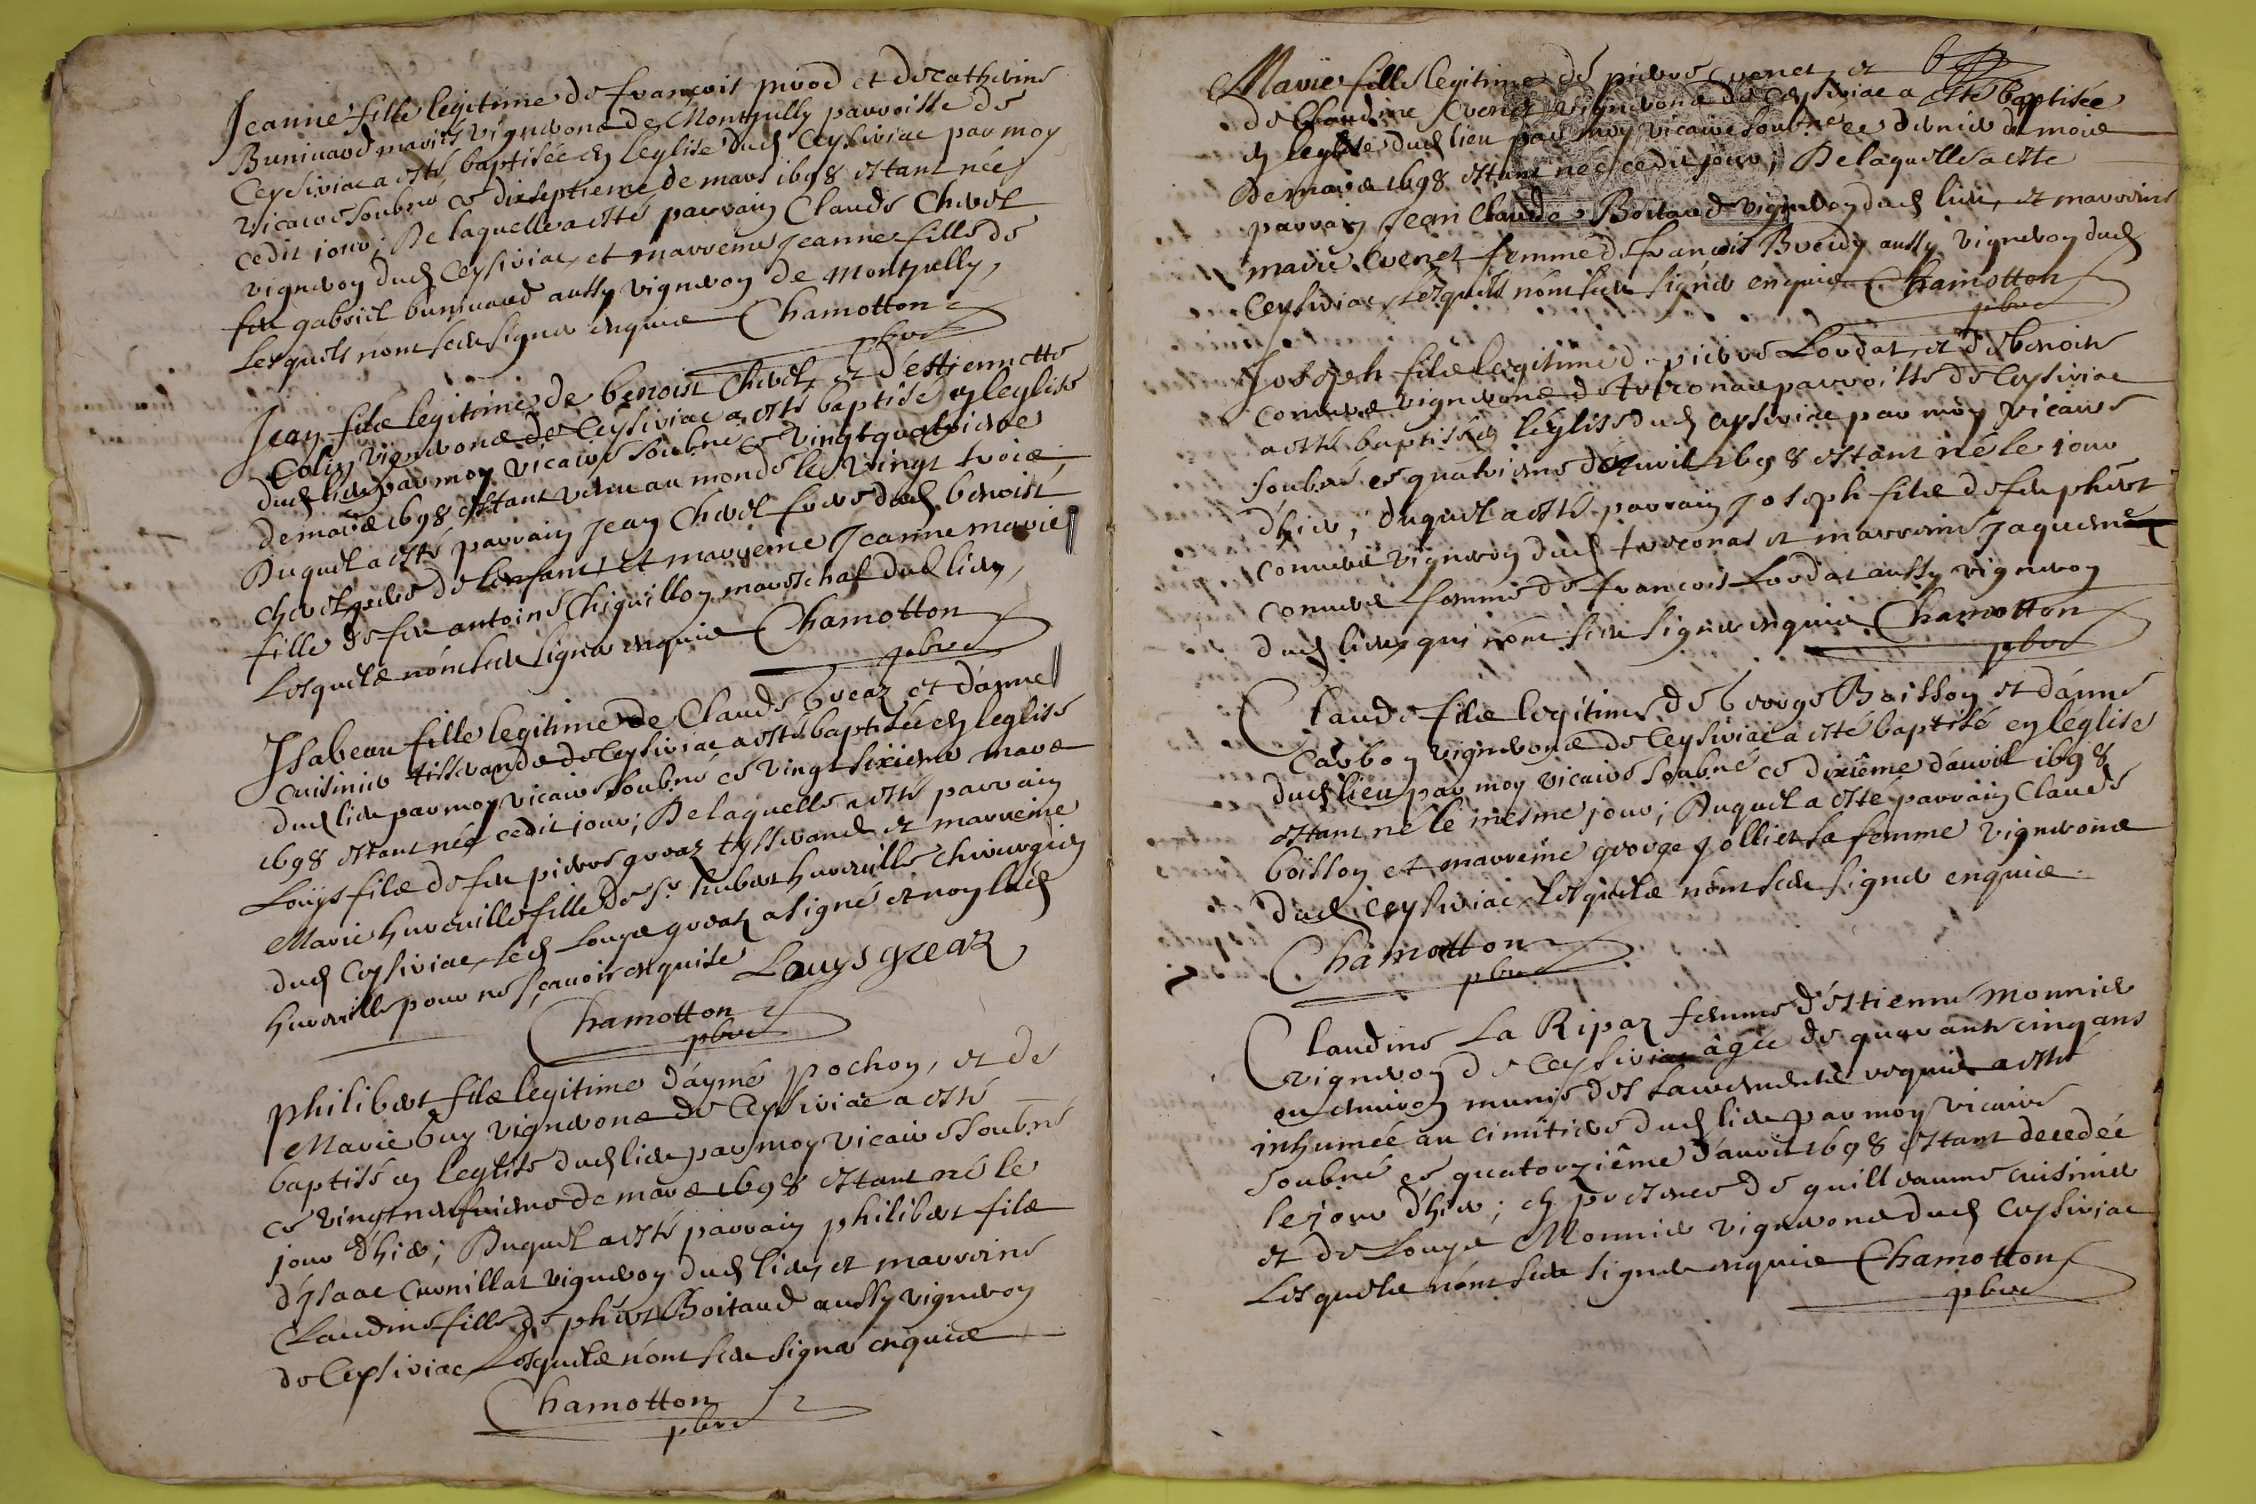 Jeanne fille legitime de francois pirod et de catherine
Buniuard mariés vignerons de Montpully parroisse de
Ceyseriac a esté baptisée en leglise dud Ceyseriac par moy
vicaire soubné ce dixseptieme de mars 1698 estant née
cedit jour; De laquelle a esté parrain Claude Chevel
vigneron dud Ceyseriac, et marreine Jeanne fille de
feu gabriel buniuard aussy vigneron de montpully,
lesquels nont sceu signer enquis Chamotton
pbre
Jean filz legitime de benoist Chevel, et d'estiennette
Colin vignerons de Ceyseriac a esté baptisé en leglise
dud lieu par moy vicaire soubné ce vingtquatrieme
de mars 1698 estant venu au monde le vingt trois,
Duquel a esté parrain Jean Chevel frere dud benoist
chevel pere de lenfant, et marreine Jeanne marie
fille de feu antoine Chiquillon mareschal dud lieu,
Lesquelz n'ont sceu signer enquis Chamotton
pbre
Isabeau fille legitime de Claude greaz et d'anne
cuisinier tisserands de Ceyseriac a esté baptisée en leglise
dud lieu par moy vicaire soubné ce vingt sixieme mars
1698 estant née cedit jour; De laquelle a esté parrain
Louys filz de feu pierre greaz tysserand et marreine
Marie hureuille fille de Sr hubert hureuille chirurgien
dud Ceyseriac, led Louys greaz a signé et non lad
hureuille pour ne sçauoir enquise Louys greaz
Chamotton
pbre
philibert filz legitime d'aymé pochon, et de
Marie Guy vignerons de Ceyseriac a esté
baptisé en leglise dud lieu par moy vicaire soubné
ce vingtneufuieme de mars 1698 estant né le
jour d'hier; Duquel a esté parrain philibert filz
d'ysaac curnillat vigneron dud lieu, et marreine
Claudine fille de phért Boitaud aussy vigneron
de Ceyseriac, Lesquelz n'ont sceu signer enquis
Chamotton
pbre
Marie fille legitime de pierre Cvenet, et
de Claudine Cvenet vignerons de Ceyseriac a esté baptisée
en leglise dud lieu par moy vicaire soubné ce dernier du mois
De mars 1698 estant née cedit jour; De laquelle a esté
parrain Jean Claude Boitaud vigneron dud lieu, et marreine
marie Cvenet femme de francois Brevy aussy vigneron dud
Ceyseriac, lesquels n'ont sceu signer enquis Chamotton
pbre
Joseph filz legitime de pierre Loudat, et de benoite
Conuers vignerons de treconas parroisse de Ceyseriac
a esté baptisé en léglise dud ceyseriac par moy vicaire
soubné ce quatrieme d'auril 1698 estant né le jour
d'hier; duquel a esté parrain Joseph filz de feu phért
conuers vigneron dud treconas et marreine Jaquema
conuers femme de francois Loudat aussy vigneron
dud lieu, qui n'ont sceu signer enquis Chamotton
pbre
Claude filz legitime de George Boisson et d'anne
Carbon vignerons de Ceyseriac a esté baptisé en léglise
dud lieu par moy vicaire soubné ce dixiême d'auril 1698
estant né le mesme jour; Duquel a esté parrain Claude
boisson et marreine george Jollier sa femme vignerons
dud Ceyseriac, lesquelz n'ont sceu signer enquis
Chamotton
pbre
Claudine La Ripaz femme d'estienne Monnier
vigneron de Ceyseriac âgée de quarante cinq ans
ou enuiron munie des sacrements requis a esté
inhumée au cimitiere dud lieu par moy vicaire
soubné ce quatorziême d'auril 1698 estant decedée
le jour d'hier; en presence de guillaume cuisinier
et de Louys Monnier vignerons dud Ceyseriac
Lesquelz n'ont sceu signer enquis Chamotton
pbre